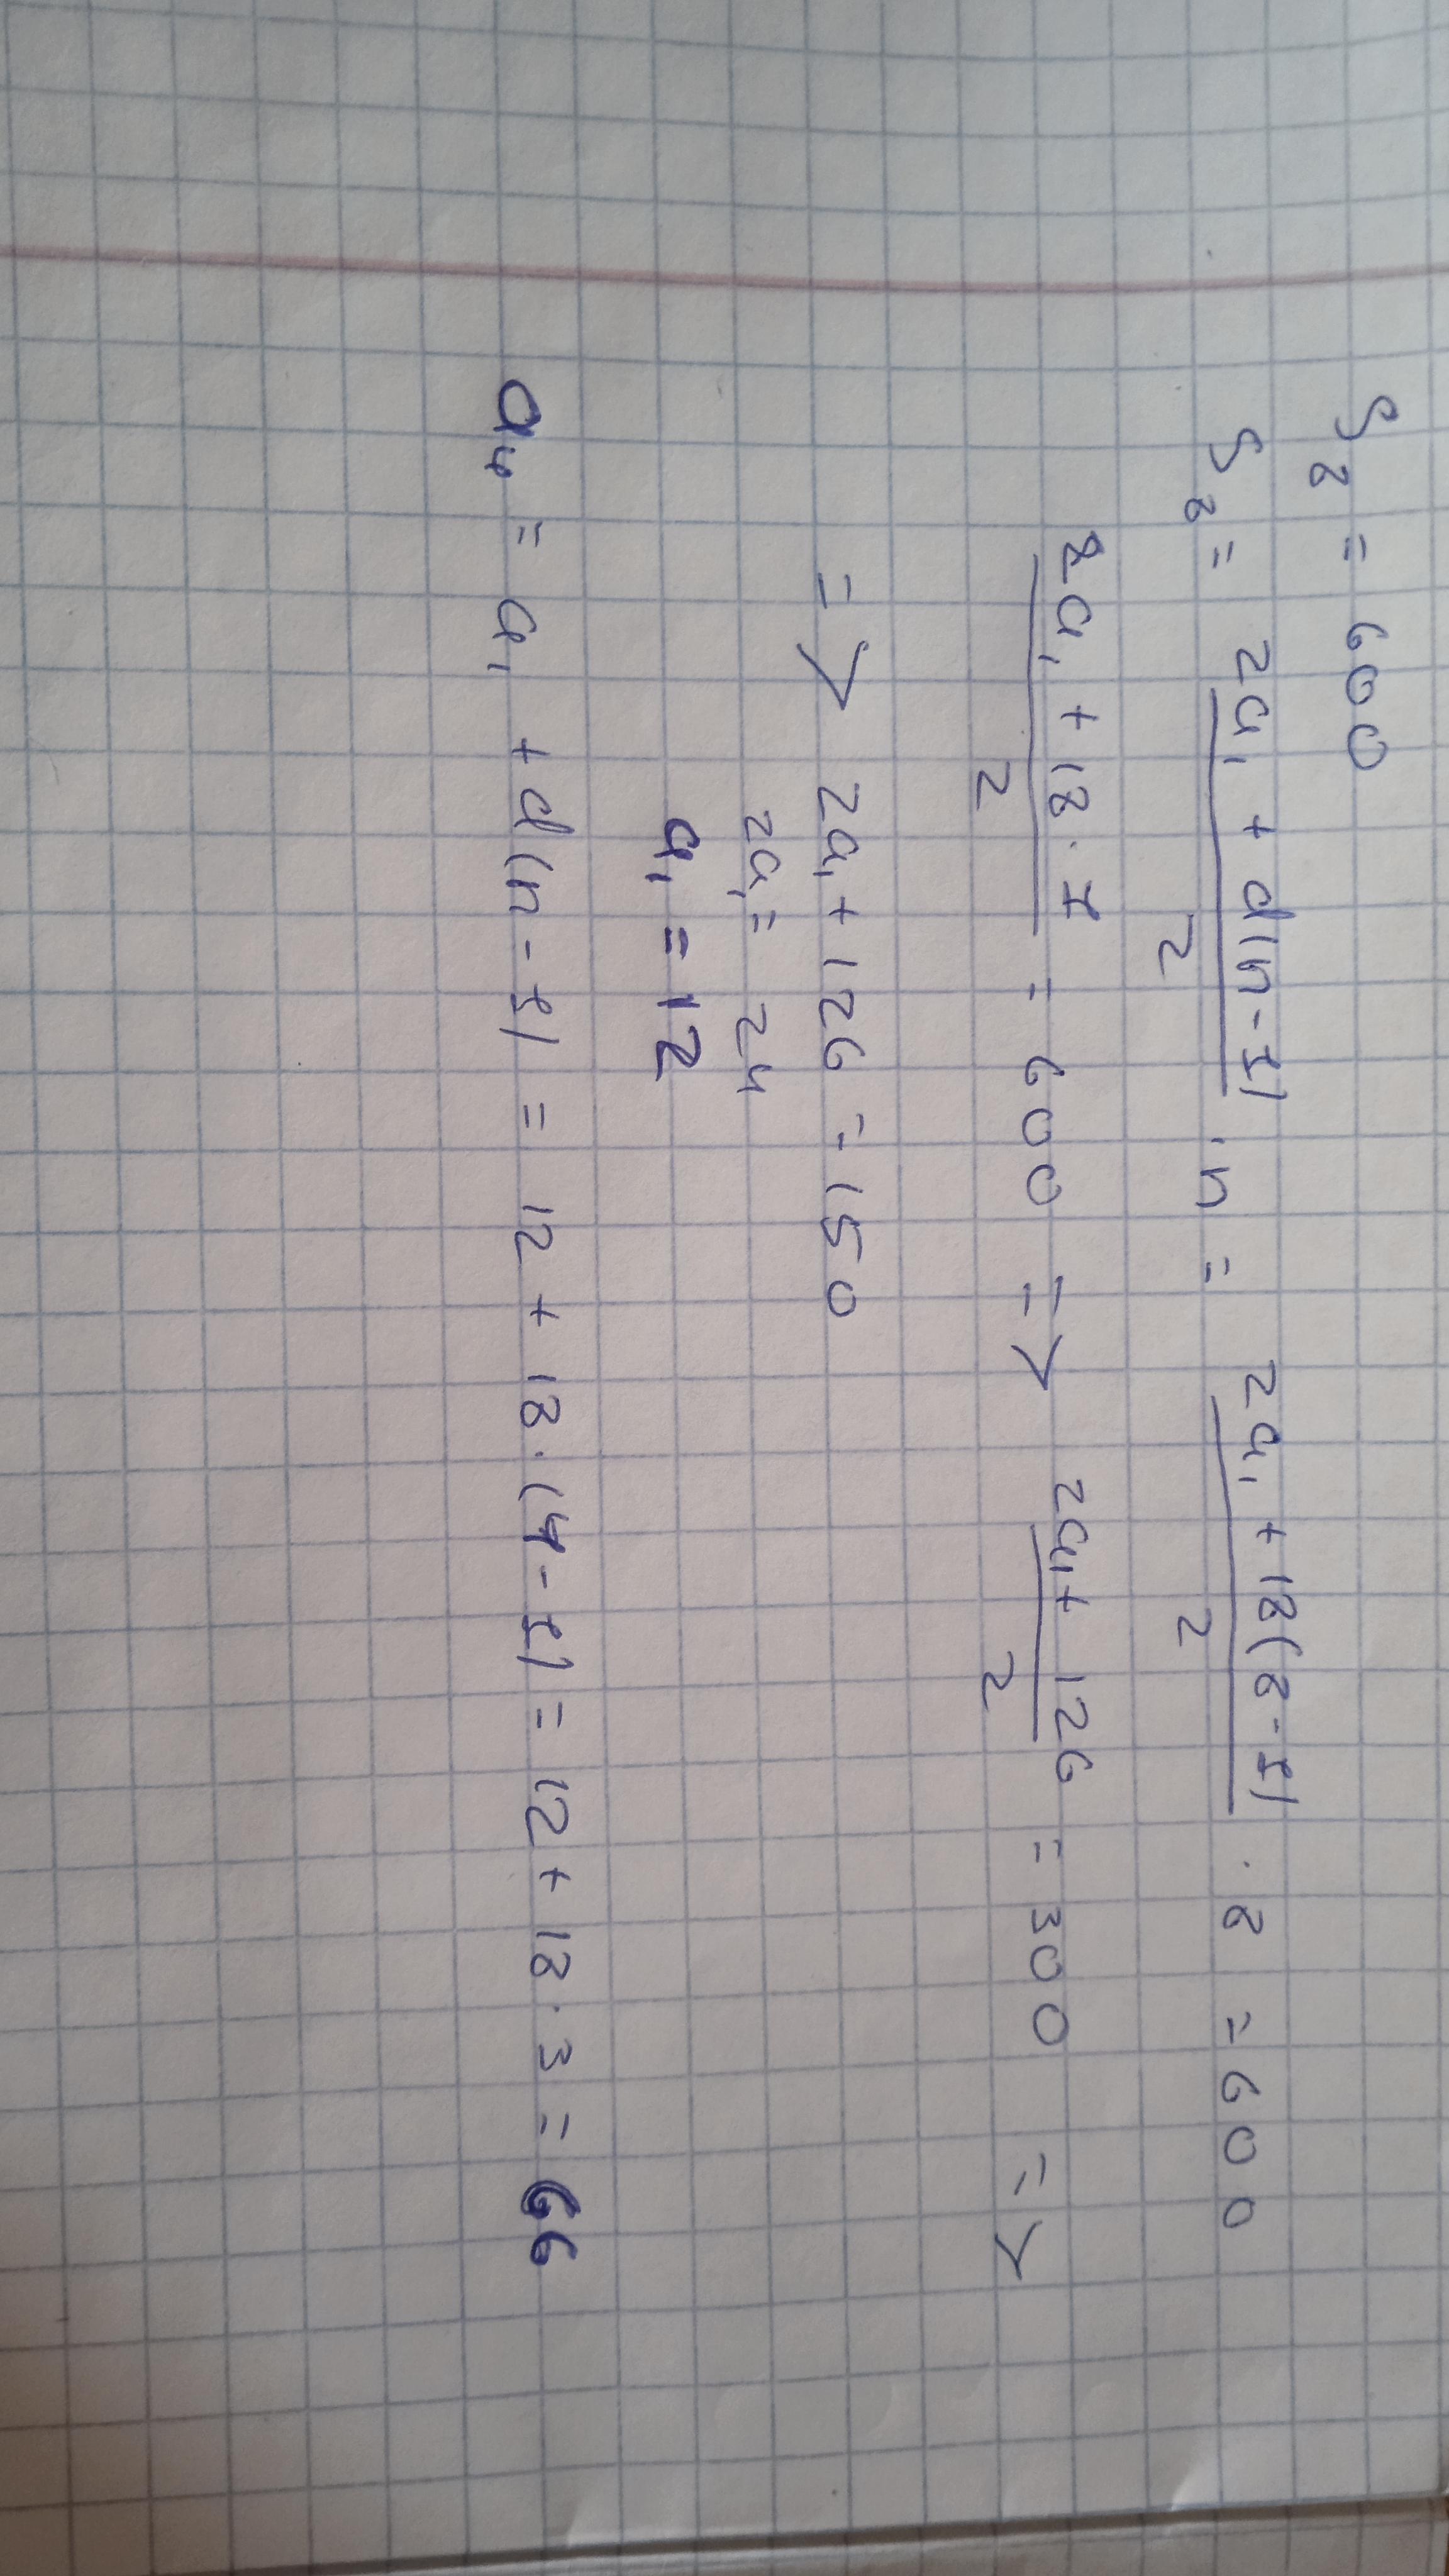 S₈ = 600
S₈ = (2a₁ + d(n-1))/2 · n = (2a₁ + 18(8-1))/2 · 8 = 600
(2a₁ + 18·7)/2 = 600 => (2a₁ + 126)/2 = 300 =>
=> 2a₁ + 126 = 150
2a₁ = 24
a₁ = 12
a₄ = a₁ + d(n-1) = 12 + 18·(4-1) = 12 + 18·3 = 66